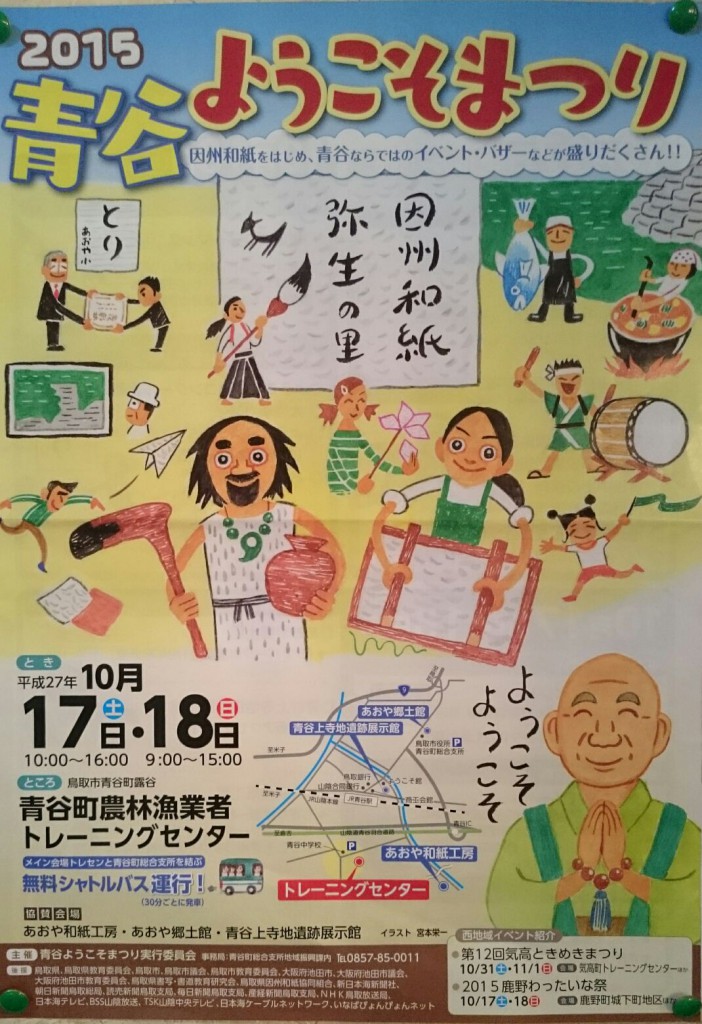 2015
青谷
ようこそまつり
因州和紙をはじめ、青谷ならではのイベント・バザーなどが盛りだくさん!!
とり
あおや小
因州和紙
弥生の里
とき
平成27年 10月
17日土・18日日
10:00〜16:00 9:00〜15:00
ところ 鳥取市青谷町露谷
青谷町農林漁業者
トレーニングセンター
メイン会場トレセンと青谷町総合支所を結ぶ
無料シャトルバス運行!
(30分ごとに発車)
協賛会場
あおや和紙工房・あおや郷土館・青谷上寺地遺跡展示館
イラスト 宮本栄一
9
あおや郷土館
青谷上寺地遺跡展示館
至米子
鳥取市役所 P
青谷町総合支所
鳥取銀行
山陰合同銀行
ようこそ館
至米子
JR山陰本線
JR青谷駅
商工会館
至倉吉
山陰道青谷羽合道路
青谷IC
青谷中学校
P
あおや和紙工房
トレーニングセンター
ようこそ
ようこそ
主催 青谷ようこそまつり実行委員会 事務局:青谷町総合支所地域振興課内 TEL0857-85-0011
後援 鳥取県、鳥取県教育委員会、鳥取市、鳥取市議会、鳥取市教育委員会、大阪府池田市、大阪府池田市議会、
大阪府池田市教育委員会、鳥取県書写・書道教育研究会、鳥取県因州和紙協同組合、新日本海新聞社、
朝日新聞鳥取総局、読売新聞鳥取支局、毎日新聞鳥取支局、産経新聞鳥取支局、NHK鳥取放送局、
日本海テレビ、BSS山陰放送、TSK山陰中央テレビ、日本海ケーブルネットワーク、いなばぴょんぴょんネット
西地域イベント紹介
●第12回気高ときめきまつり
10/31土・11/1日 会場 気高町トレーニングセンターほか
●2015鹿野わったいな祭
10/17土・18日 会場 鹿野町城下町地区ほか